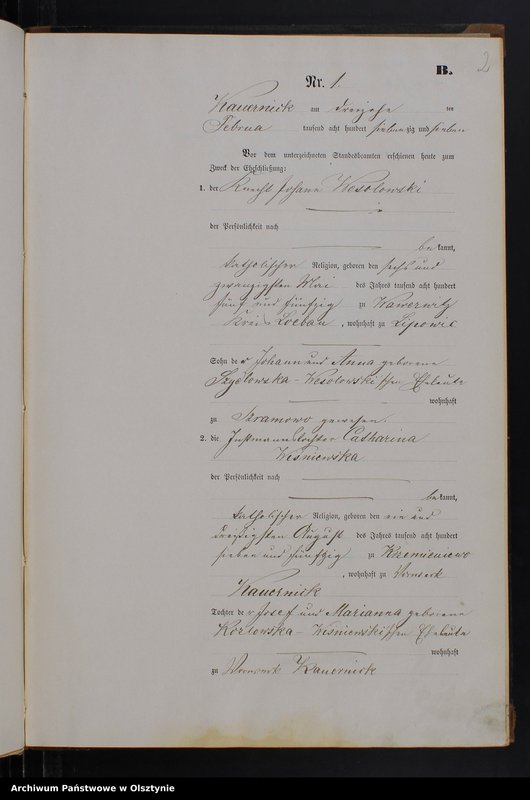 2
B.
Nr. 1.
Kauernick am dreizehn ten
Februar tausend acht hundert siebenzig und sieben
Vor dem unterzeichneten Standesbeamten erschienen heute zum
Zweck der Eheschließung:
1. der Knecht Johann Wesolowski
der Persönlichkeit nach
be kannt,
katholischer Religion, geboren den sechs und
zwanzigsten Mai des Jahres tausend acht hundert
fünf und fünfzig zu Wawerwitz
Kreis Loebau, wohnhaft zu Lipowic
Sohn der Johann und Anna geborene
Szydlowska-Wesolowski'schen Eheleute
wohnhaft
zu Skramowo gewesen.
2. die Instmannstochter Catharina
Wisniewska
der Persönlichkeit nach
be kannt,
katholischer Religion, geboren den ein und
dreißigsten August des Jahres tausend acht hundert
sieben und fünfzig zu Krzemieniewo
, wohnhaft zu Vorwerk
Kauernick
Tochter der Josef und Marianna geborene
Kozlowska-Wisniewski'schen Eheleute
wohnhaft
zu Vorwerk Kauernick
Archiwum Państwowe w Olsztynie